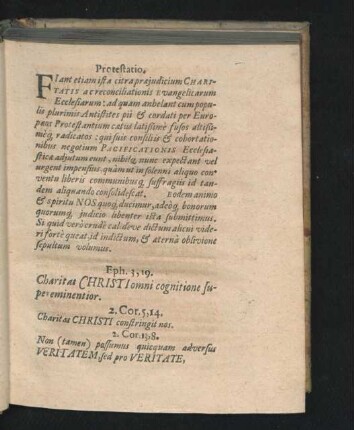 Protestatio.
Fiant etiam ista citra præjudicium CHARI-
TATIS ac reconciliationis Evangelicarum
Ecclesiarum: ad quam anhelant cum popu-
lis plurimis Antistites pii & cordati per Euro-
pam Protestantium cætus latissimè fusos altissi-
mèq; radicatos: qui suis consiliis & cohortatio-
nibus negotium PACIFICATIONIS Ecclesia-
sticæ adjutum eunt, nihilq; nunc expectant vel
urgent impensius, quàm ut in solenni aliquo con-
ventu liberis communibusq; suffragiis id tan-
dem aliquando consilidescat. Eodem animo
& spiritu NOS quoq; ducimur, adeoq; bonorum
quorumq; judicio libenter ista submittimus.
Si quid verò crudè calidève dictum alicui vide-
ri fortè queat, id indictum, & æterna oblivione
sepultum volumus.
Eph. 3,19.
Charitas CHRISTI omni cognitione su-
pereminentior.
2. Cor. 5,14.
Charitas CHRISTI constringit nos.
2. Cor. 13,8.
Non (tamen) possumus quicquam adversus
VERITATEM, sed pro VERITATE,